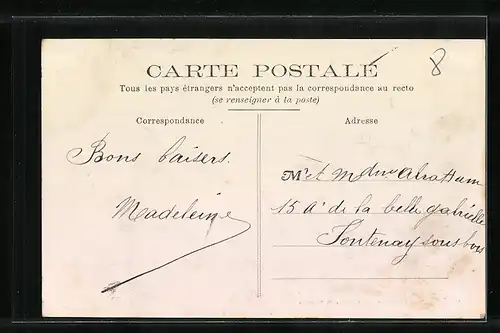 8
CARTE POSTALE
Tous les pays étrangers n'acceptent pas la correspondance au recto
(se renseigner à la poste)
Correspondance
Adresse
Bons baisers.
Madeleine
Mr et mdme
15 A' de la belle gabrielle
Fontenay sous bois